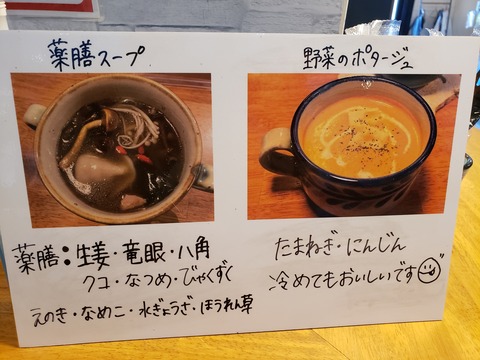 薬膳スープ
野菜のポタージュ
薬膳:生姜・竜眼・八角
クコ・なつめ・びゃくずく
えのき・なめこ・水ぎょうざ・ほうれん草
たまねぎ・にんじん
冷めてもおいしいです